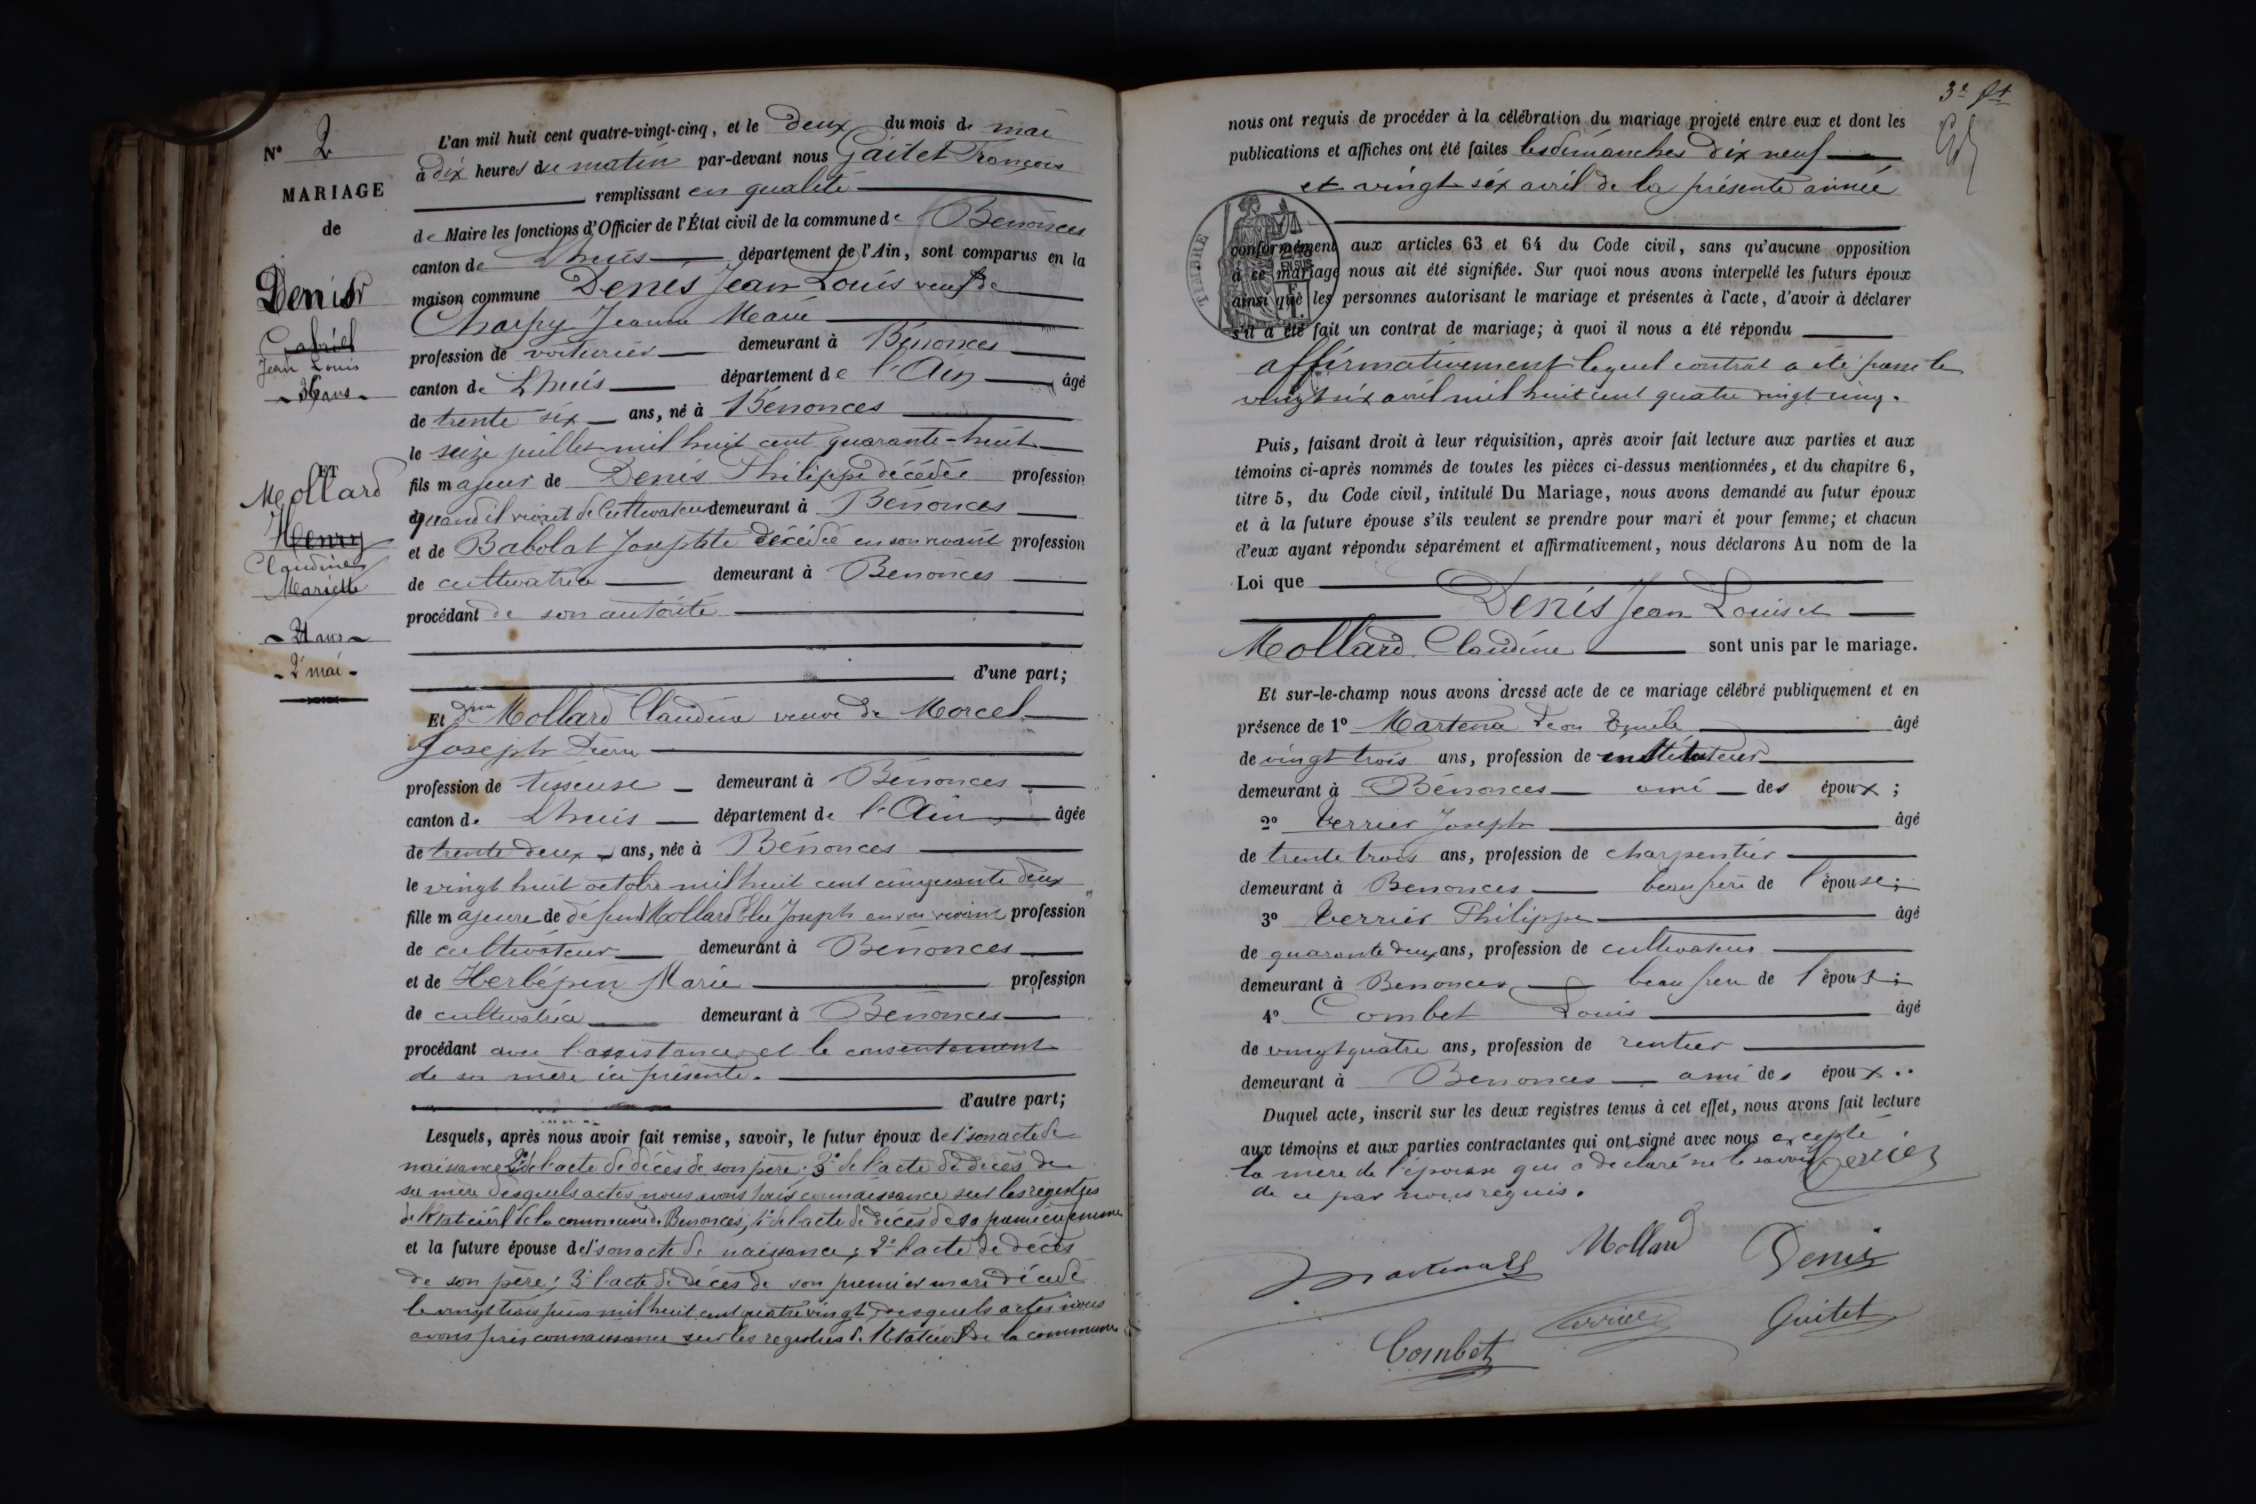 N° 2
MARIAGE
de
Denis
Gabriel
Jean Louis
36 ans
ET
Mollard
Henry
Claudine
Mariette
2 mai
L'an mil huit cent quatre-vingt-cinq, et le deux du mois de mai
à dix heures du matin par-devant nous Guitet François
remplissant en qualité
de Maire les fonctions d'Officier de l'État civil de la commune de Bénonces
canton de Lhuis département de l'Ain, sont comparus en la
maison commune Denis Jean Louis veuf de
Charpy Jeanne Marie
profession de voiturier demeurant à Bénonces
canton de Lhuis département de l'Ain âgé
de trente six ans, né à Bénonces
le seize juillet mil huit cent quarante-huit
fils majeur de Denis Philippe décédé profession
quand il vivait de Cultivateur demeurant à Bénonces
et de Babolat Josephte décédée en son vivant profession
de cultivatrice demeurant à Bénonces
procédant de son autorité
d'une part;
Et dme Mollard Claudine veuve de Morcel
Joseph Pierre
profession de tisseuse demeurant à Bénonces
canton de Lhuis département de l'Ain âgée
de trente deux ans, née à Bénonces
le vingt huit octobre mil huit cent cinquante deux
fille majeure de défunt Mollard Joseph en son vivant profession
de cultivateur demeurant à Bénonces
et de Herbépin Marie profession
de cultivatrice demeurant à Bénonces
procédant avec l'assistance et le consentement
de sa mère ici présente.
d'autre part;
Lesquels, après nous avoir fait remise, savoir, le futur époux de 1° son acte de
naissance 2° de l'acte de décès de son père; 3° de l'acte de décès de
sa mère desquels actes nous avons pris connaissance sur les registres
de l'Etat civil de la commune de Benonces; 4° de l'acte de décès de sa première femme
et la future épouse de 1° son acte de naissance; 2° l'acte de décès
de son père; 3° l'acte de décès de son premier mari décédé
le vingt trois juin mil huit cent quatre vingt, desquels actes nous
avons pris connaissance sur les registres de l'Etat civil de la commune
3e ft
nous ont requis de procéder à la célébration du mariage projeté entre eux et dont les
publications et affiches ont été faites les dimanches dix neuf
et vingt six avril de la présente année
TIMBRE
conformément aux articles 63 et 64 du Code civil, sans qu'aucune opposition
à ce mariage nous ait été signifiée. Sur quoi nous avons interpellé les futurs époux
ainsi que les personnes autorisant le mariage et présentes à l'acte, d'avoir à déclarer
s'il a été fait un contrat de mariage; à quoi il nous a été répondu
affirmativement lequel contrat a été passé le
vingt six avril mil huit cent quatre vingt cinq.
Puis, faisant droit à leur réquisition, après avoir fait lecture aux parties et aux
témoins ci-après nommés de toutes les pièces ci-dessus mentionnées, et du chapitre 6,
titre 5, du Code civil, intitulé Du Mariage, nous avons demandé au futur époux
et à la future épouse s'ils veulent se prendre pour mari et pour femme; et chacun
d'eux ayant répondu séparément et affirmativement, nous déclarons Au nom de la
Loi que
Denis Jean Louis et
Mollard Claudine sont unis par le mariage.
Et sur-le-champ nous avons dressé acte de ce mariage célébré publiquement et en
présence de 1° Martena Léon Emile âgé
de vingt trois ans, profession de instituteur
demeurant à Bénonces ami des époux;
2° Verrier Joseph âgé
de trente trois ans, profession de charpentier
demeurant à Benonces beau frère de l'épouse;
3° Verrier Philippe âgé
de quarante deux ans, profession de cultivateur
demeurant à Benonces beau frère de l'épouse;
4° Combet Louis âgé
de vingt quatre ans, profession de rentier
demeurant à Benonces ami des époux.
Duquel acte, inscrit sur les deux registres tenus à cet effet, nous avons fait lecture
aux témoins et aux parties contractantes qui ont signé avec nous excepté
la mère de l'épouse qui a déclaré ne le savoir Verrier
de ce par nous requis.
Mollard
Denis
Martena
Verrier
Guitet
Combet